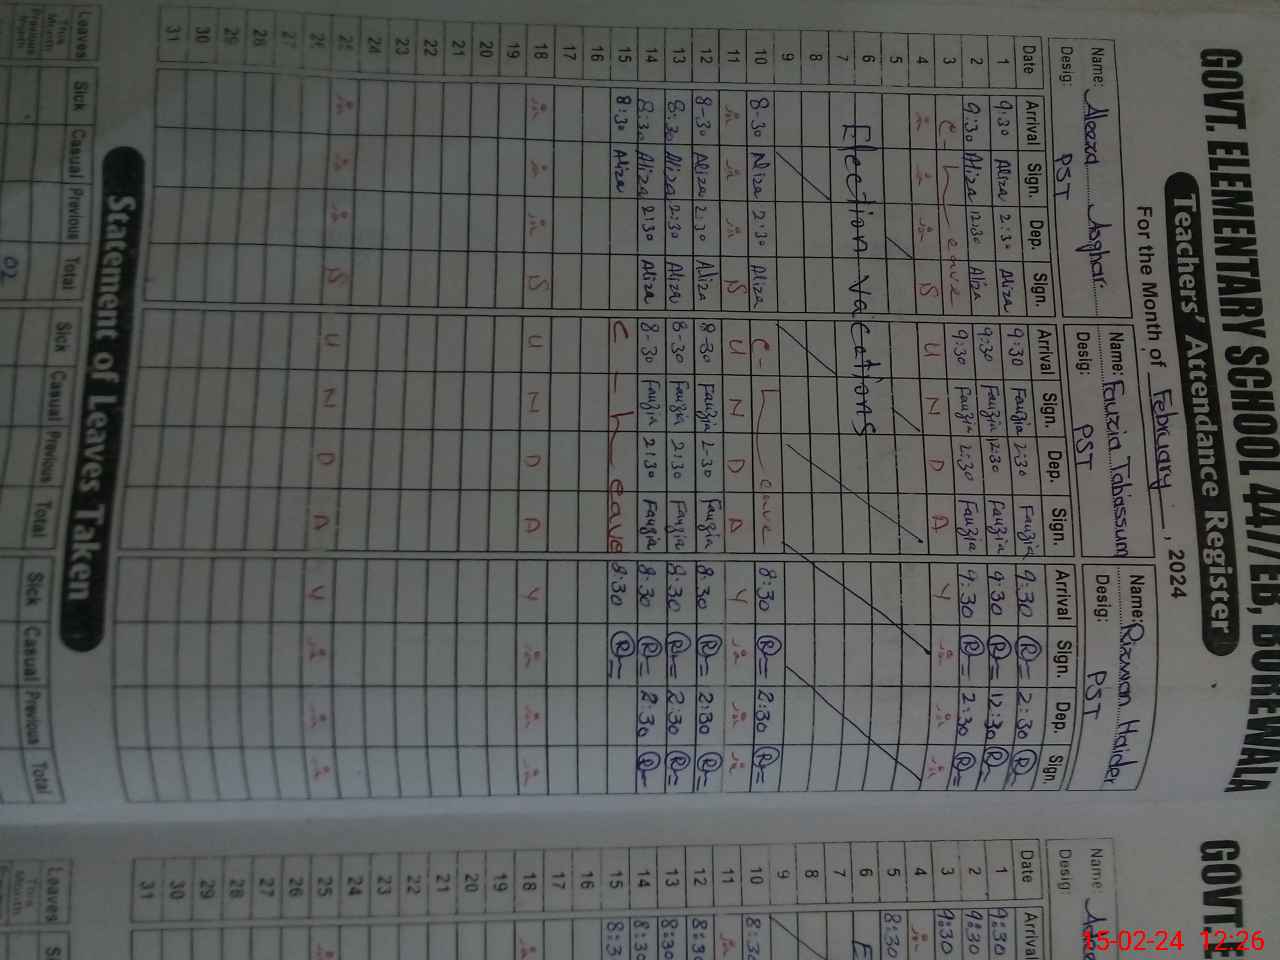 GOVT. ELEMENTARY SCHOOL 447/EB, BUREWALA
Teachers' Attendance Register
For the Month of February, 2024
Name: Aleeza Asghar Name: Fauzia Tabassum Name: Rizwan Haider
Desig: PST Desig: PST Desig: PST
Date Arrival Sign. Dep. Sign. Arrival Sign. Dep. Sign. Arrival Sign. Dep. Sign.
1 9:30 Aliza 2:30 Aliza 9:30 Fauzia 2:30 Fauzia 9:30 R 2:30 R
2 9:30 Aliza 12:30 Aliza 9:30 Fauzia 12:30 Fauzia 9:30 R 12:30 R
3 C-Leave 9:30 Fauzia 2:30 Fauzia 9:30 R 2:30 R
4 S U N D A Y
5
6 Election Vacations
7
8
9
10 8-30 Aliza 2:30 Aliza C-Leave 8:30 R 2:30 R
11 S U N D A Y
12 8-30 Aliza 2:30 Aliza 8-30 Fauzia 2-30 Fauzia 8:30 R 2:30 R
13 8:30 Aliza 2:30 Aliza 8-30 Fauzia 2:30 Fauzia 8:30 R 2:30 R
14 8:30 Aliza 2:30 Aliza 8-30 Fauzia 2:30 Fauzia 8:30 R 2:30 R
15 8:30 Aliza C-Leave 8:30 R
16
17
18 S U N D A Y
19
20
21
22
23
24
25 S U N D A Y
26
27
28
29
30
31
Statement of Leaves Taken
Leaves Sick Casual Previous Total Sick Casual Previous Total Sick Casual Previous Total
This Month
Previous Month 02
GOVT. E
Name:
Desig:
Date Arrival
1 9:30
2 9:30
3 9:30
4
5 8:30
6 E
7
8
9
10 8:30
11
12 8:30
13 8:30
14 8:30
15 8:3
16
17
18
19
20
21
22
23
24
25
26
27
28
29
30
31
Leaves S
This Month
15-02-24 12:26